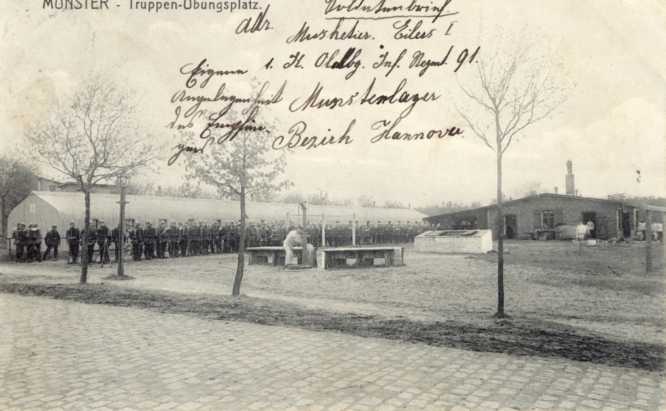 MUNSTER - Truppen-Übungsplatz.
Soldatenbrief
Adr. Musketier. Eilers I
1. K. Oldbg. Inf. Regmt. 91.
Munsterlager
Bezirk Hannover
Eigene
Angelegenheit
des Empfän
gers